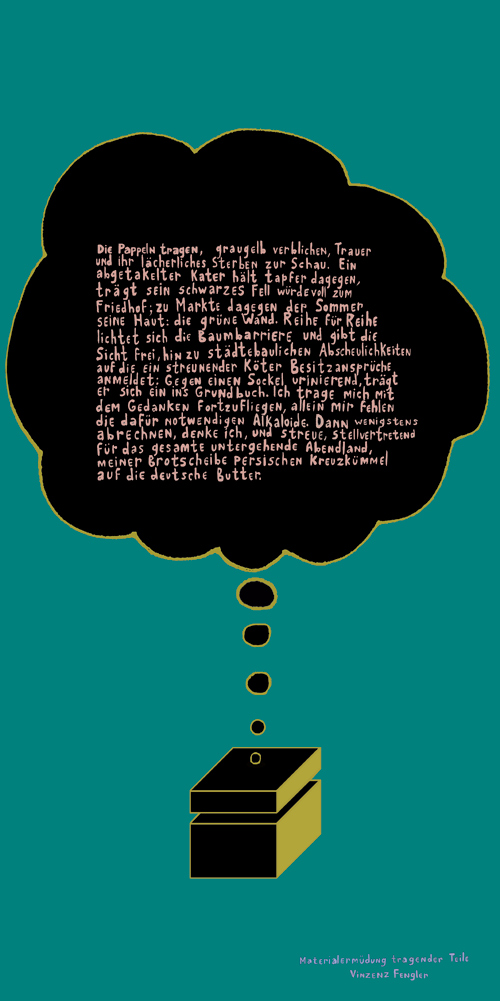 Die Pappeln tragen, graugelb verblichen, Trauer
und ihr lächerliches Sterben zur Schau. Ein
abgetakelter Kater hält tapfer dagegen,
trägt sein schwarzes Fell würdevoll zum
Friedhof; zu Markte dagegen der Sommer
seine Haut: die grüne Wand. Reihe für Reihe
lichtet sich die Baumbarriere und gibt die
Sicht frei, hin zu städtebaulichen Abscheulichkeiten
auf die ein streunender Köter Besitzansprüche
anmeldet: Gegen einen Sockel urinierend, trägt
er sich ein ins Grundbuch. Ich trage mich mit
dem Gedanken fortzufliegen, allein mir fehlen
die dafür notwendigen Alkaloide. Dann wenigstens
abrechnen, denke ich, und streue, stellvertretend
für das gesamte untergehende Abendland,
meiner Brotscheibe persischen Kreuzkümmel
auf die deutsche Butter.
Materialermüdung tragender Teile
Vinzenz Fengler